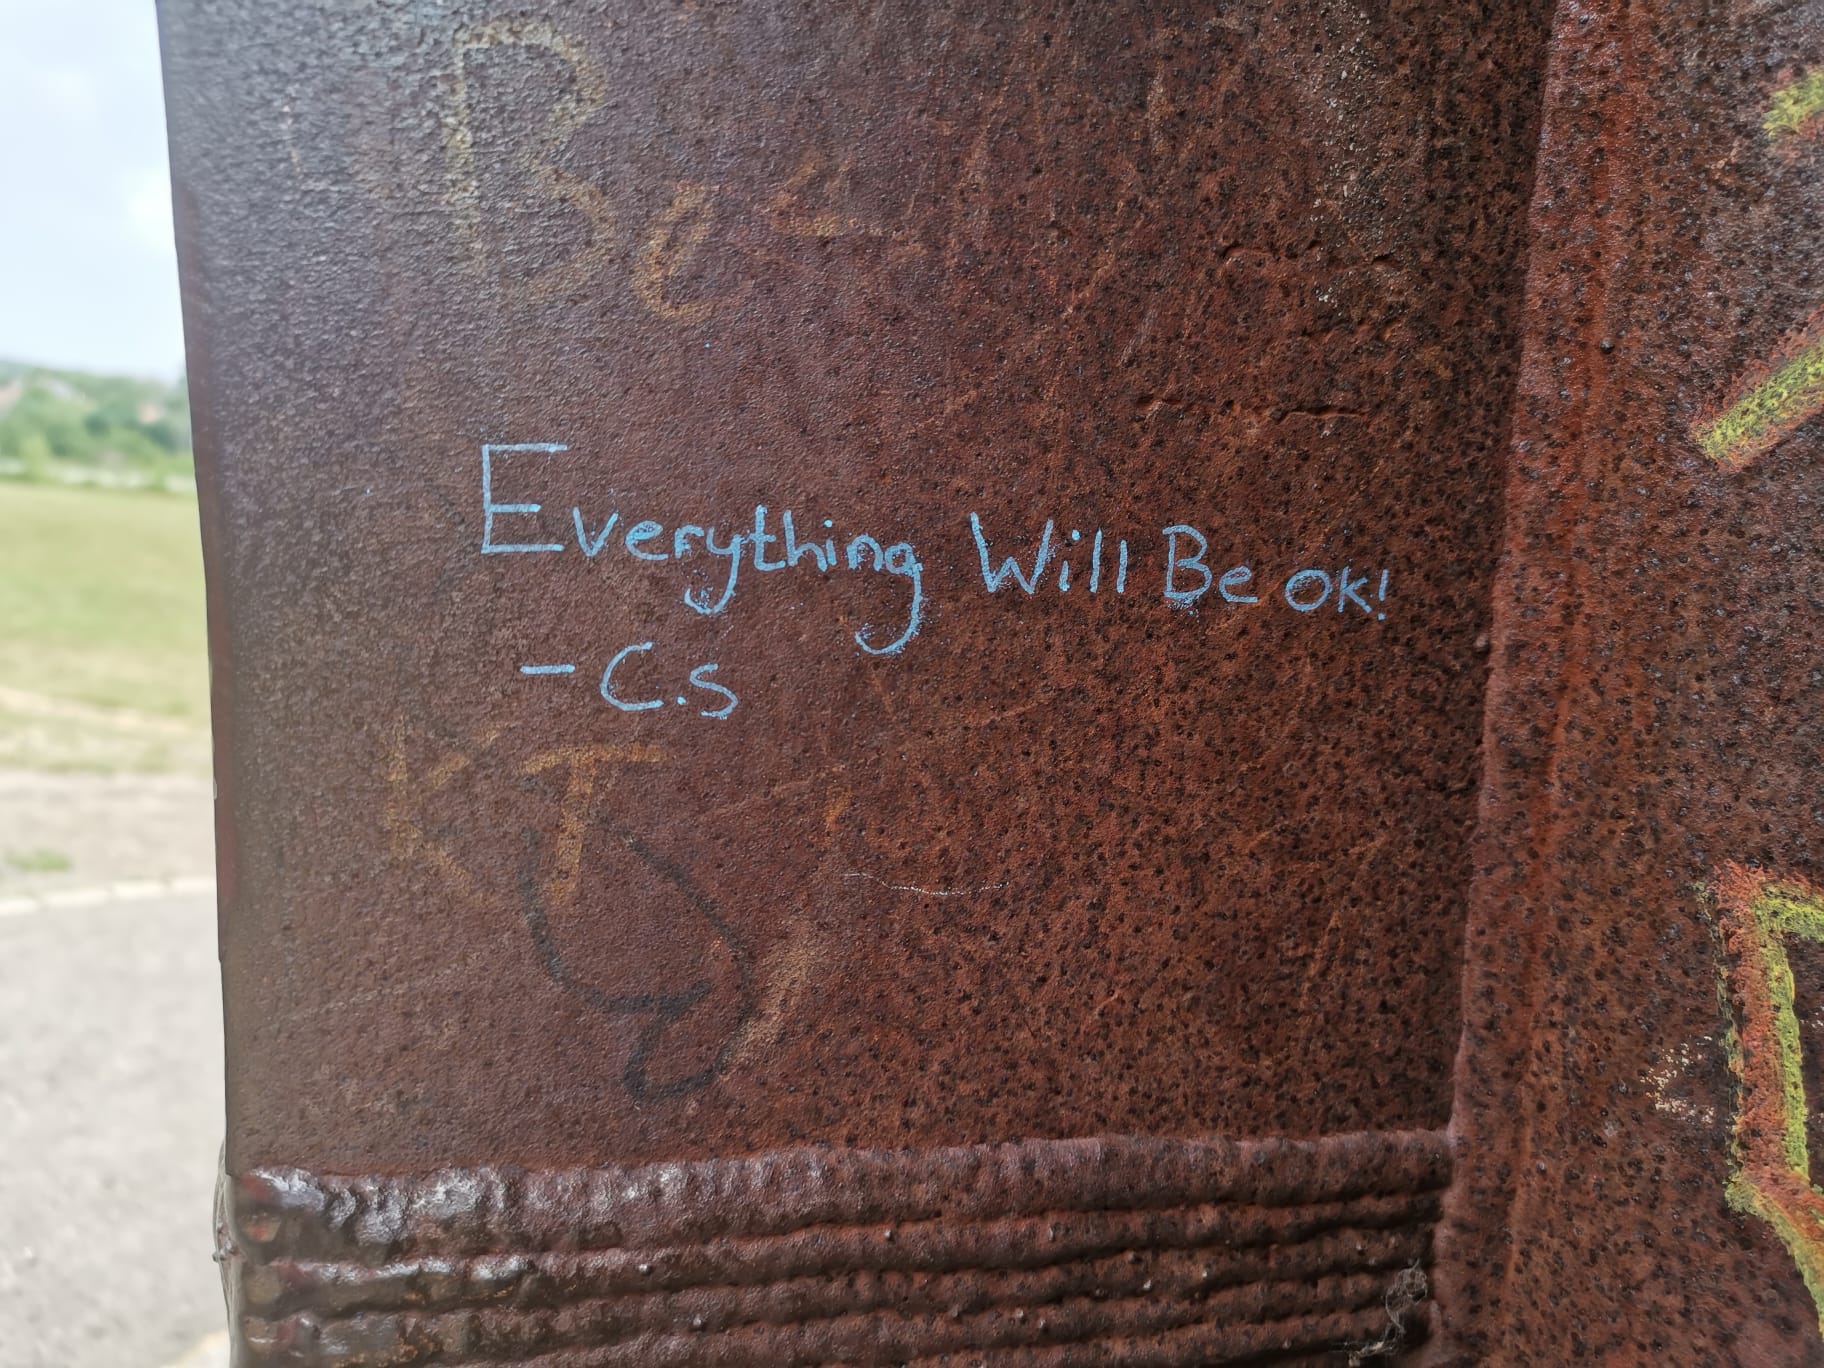 Be
Everything Will Be OK!
- C.S
KT